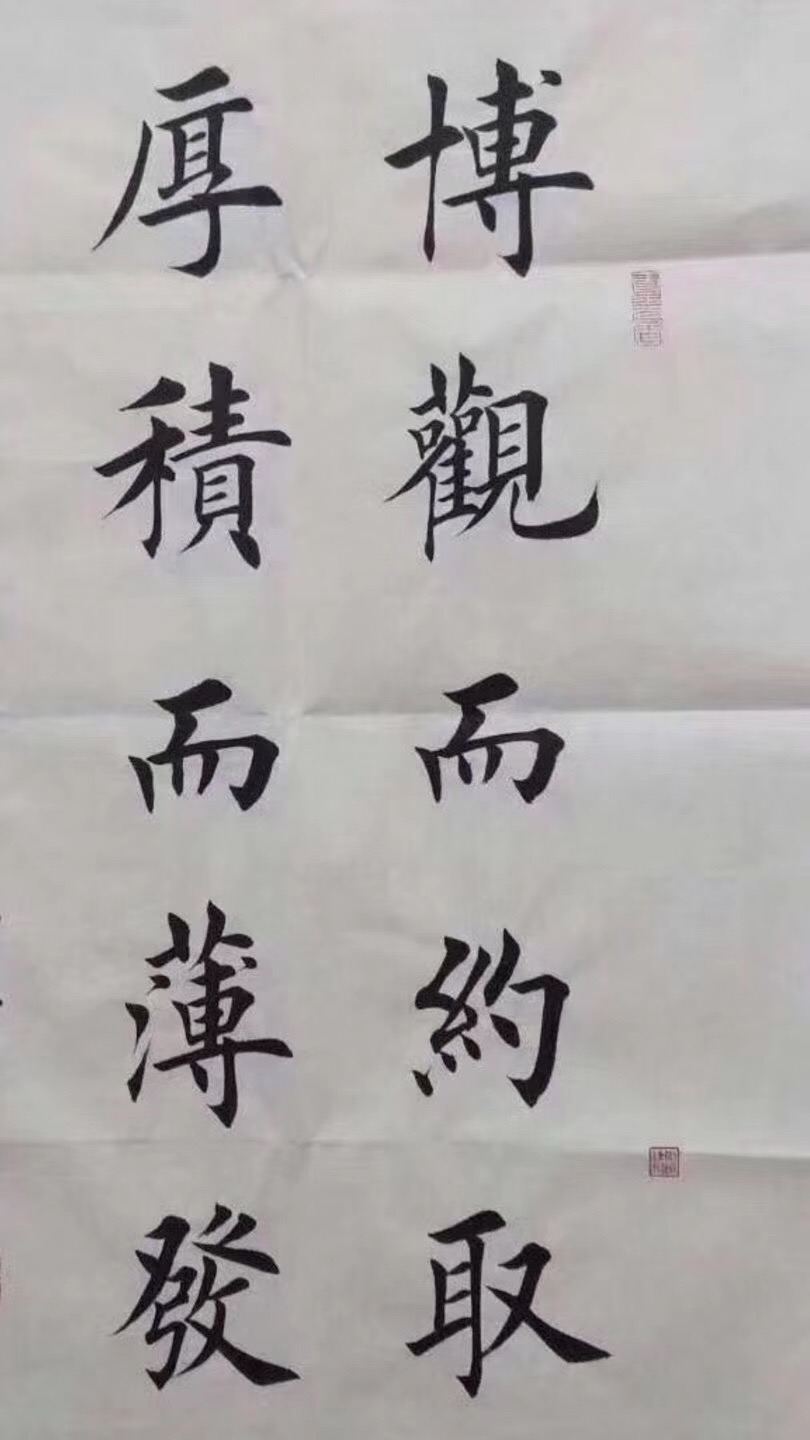 博觀而約取
厚積而薄發